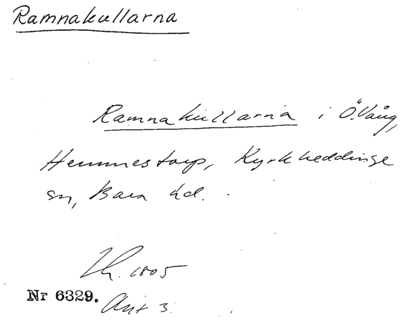 Ramnakullarna
Ramnakullarna i Ö. Vång,
Hemmestorp, Kyrkheddinge
sn, Bara hd.
Lh. 1805
Nr 6329. Akt 3.